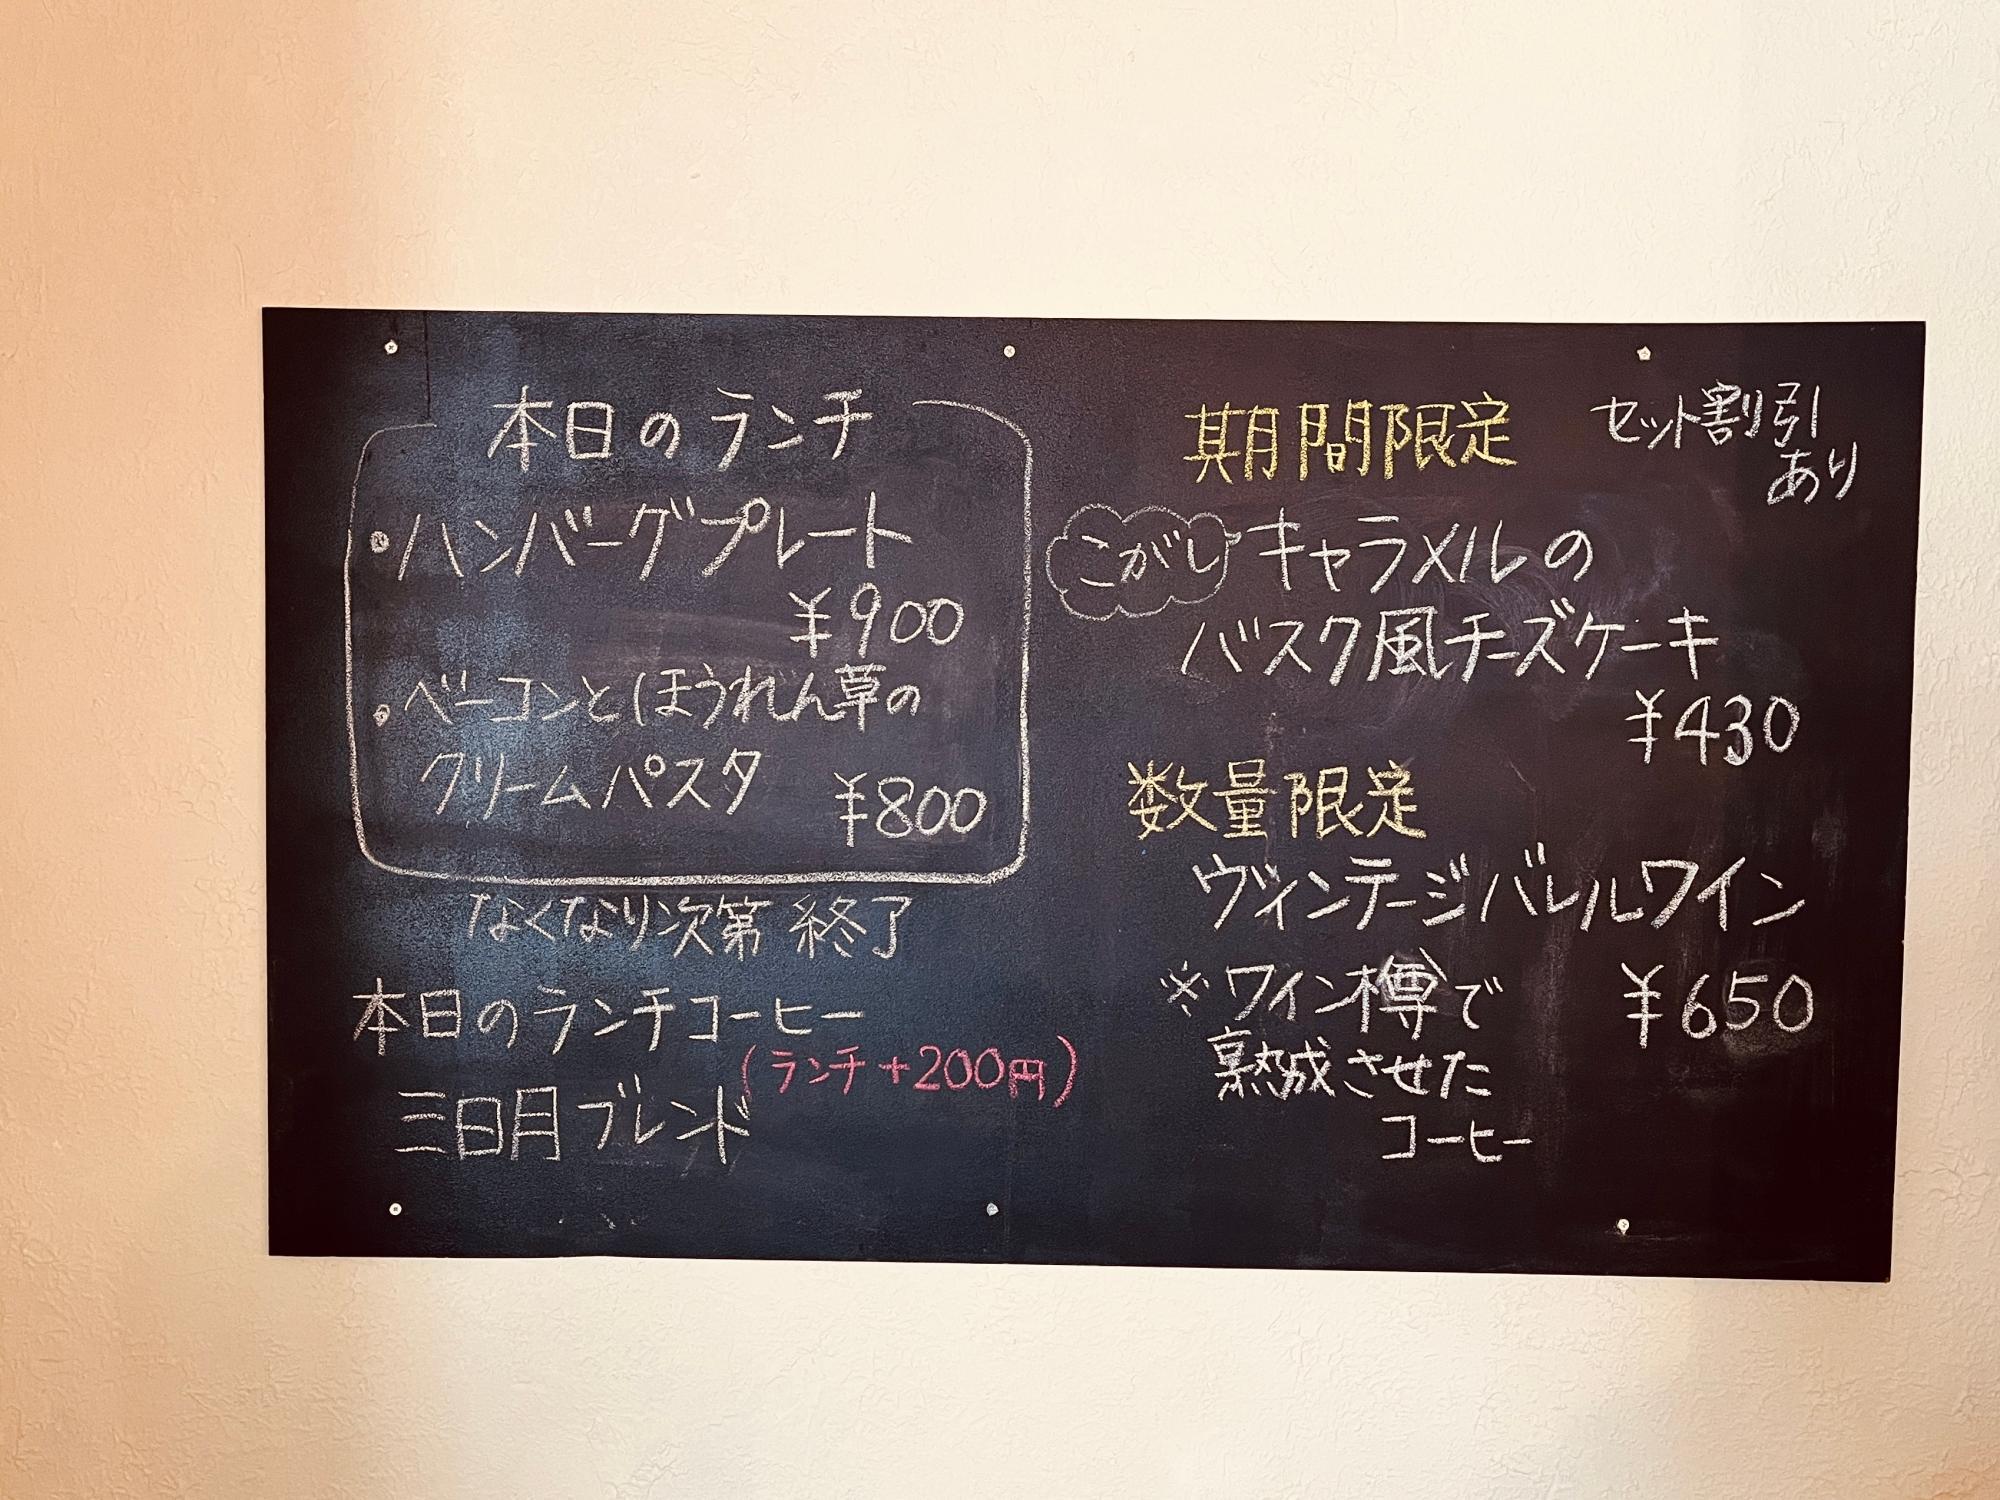 本日のランチ
・ハンバーグプレート
¥900
・ベーコンとほうれん草の
クリームパスタ ¥800
なくなり次第 終了
本日のランチコーヒー
(ランチ+200円)
三日月ブレンド
期間限定
セット割引
あり
こがしキャラメルの
バスク風チーズケーキ
¥430
数量限定
ヴィンテージバレルワイン
¥650
※ワイン樽で
熟成させた
コーヒー